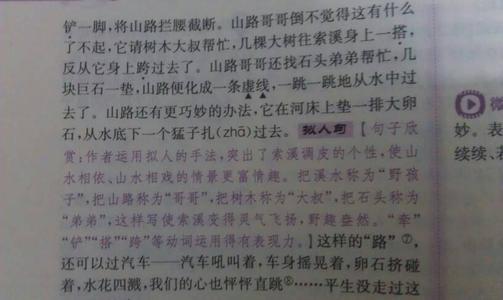 铲一脚,将山路拦腰截断。山路哥哥倒不觉得这有什么
了不起,它请树木大叔帮忙,几棵大树往索溪身上一搭,
反从它身上跨过去了。山路哥哥还找石头弟弟帮忙,几
块巨石一垫,山路便化成一条虚线,一跳一跳地从水中过
去了。山路还有更巧妙的办法,它在河床上垫一排大卵
石,从水底下一个猛子扎(zhā)过去。 拟人句【句子欣
赏:作者运用拟人的手法,突出了索溪调皮的个性,使山
水相依、山水相戏的情景更富情趣。把溪水称为“野孩
子”,把山路称为“哥哥”,把树木称为“大叔”,把石头称为
“弟弟”,这样写使索溪变得灵气飞扬,野趣盎然。“牵”
“铲”“搭”“跨”等动词运用得有表现力。】这样的“路”⑦,
还可以过汽车——汽车吼叫着,车身摇晃着,卵石挤碰
着,水花四溅,我们的心也怦怦直跳⑧……平生没走过这
妙。表
续续、